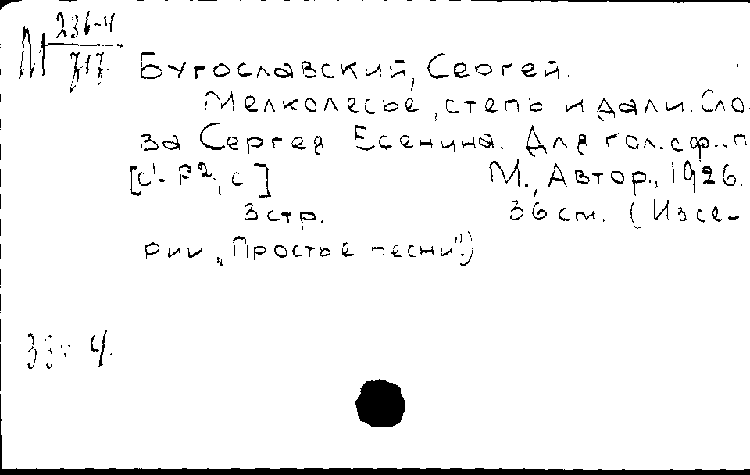 М 236-4
717
Бугославский, Сергей.
Мелколесье, степь и дали. Сло-
ва Сергея Есенина. Для гол. с ф.-п.
М., Автор., 1926.
3 стр. 36 см. (Из се-
рии „Простые песни".)